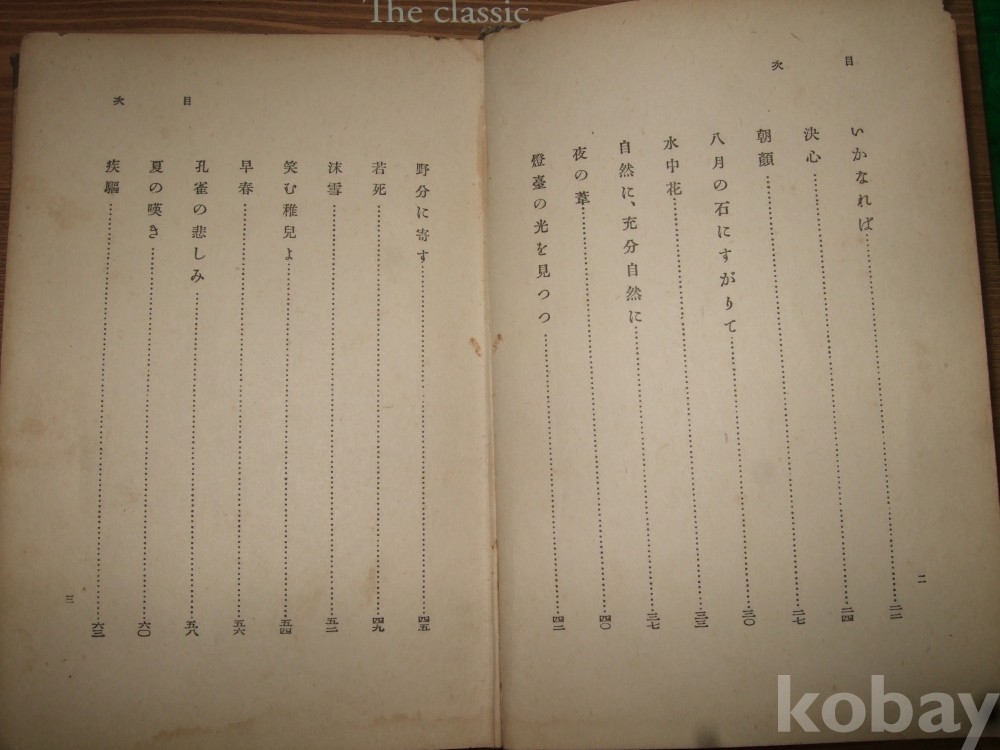 The classic
目次
いかなれば……二二
決心……二四
朝顔……二七
八月の石にすがりて……三〇
水中花……三三
自然に、充分自然に……三七
夜の葦……四〇
燈臺の光を見つつ……四二
二
目次
野分に寄す……四五
若死……四九
沫雪……五二
笑む稚兒よ……五四
早春……五六
孔雀の悲しみ……五八
夏の嘆き……六〇
疾驅……六三
三
kobay